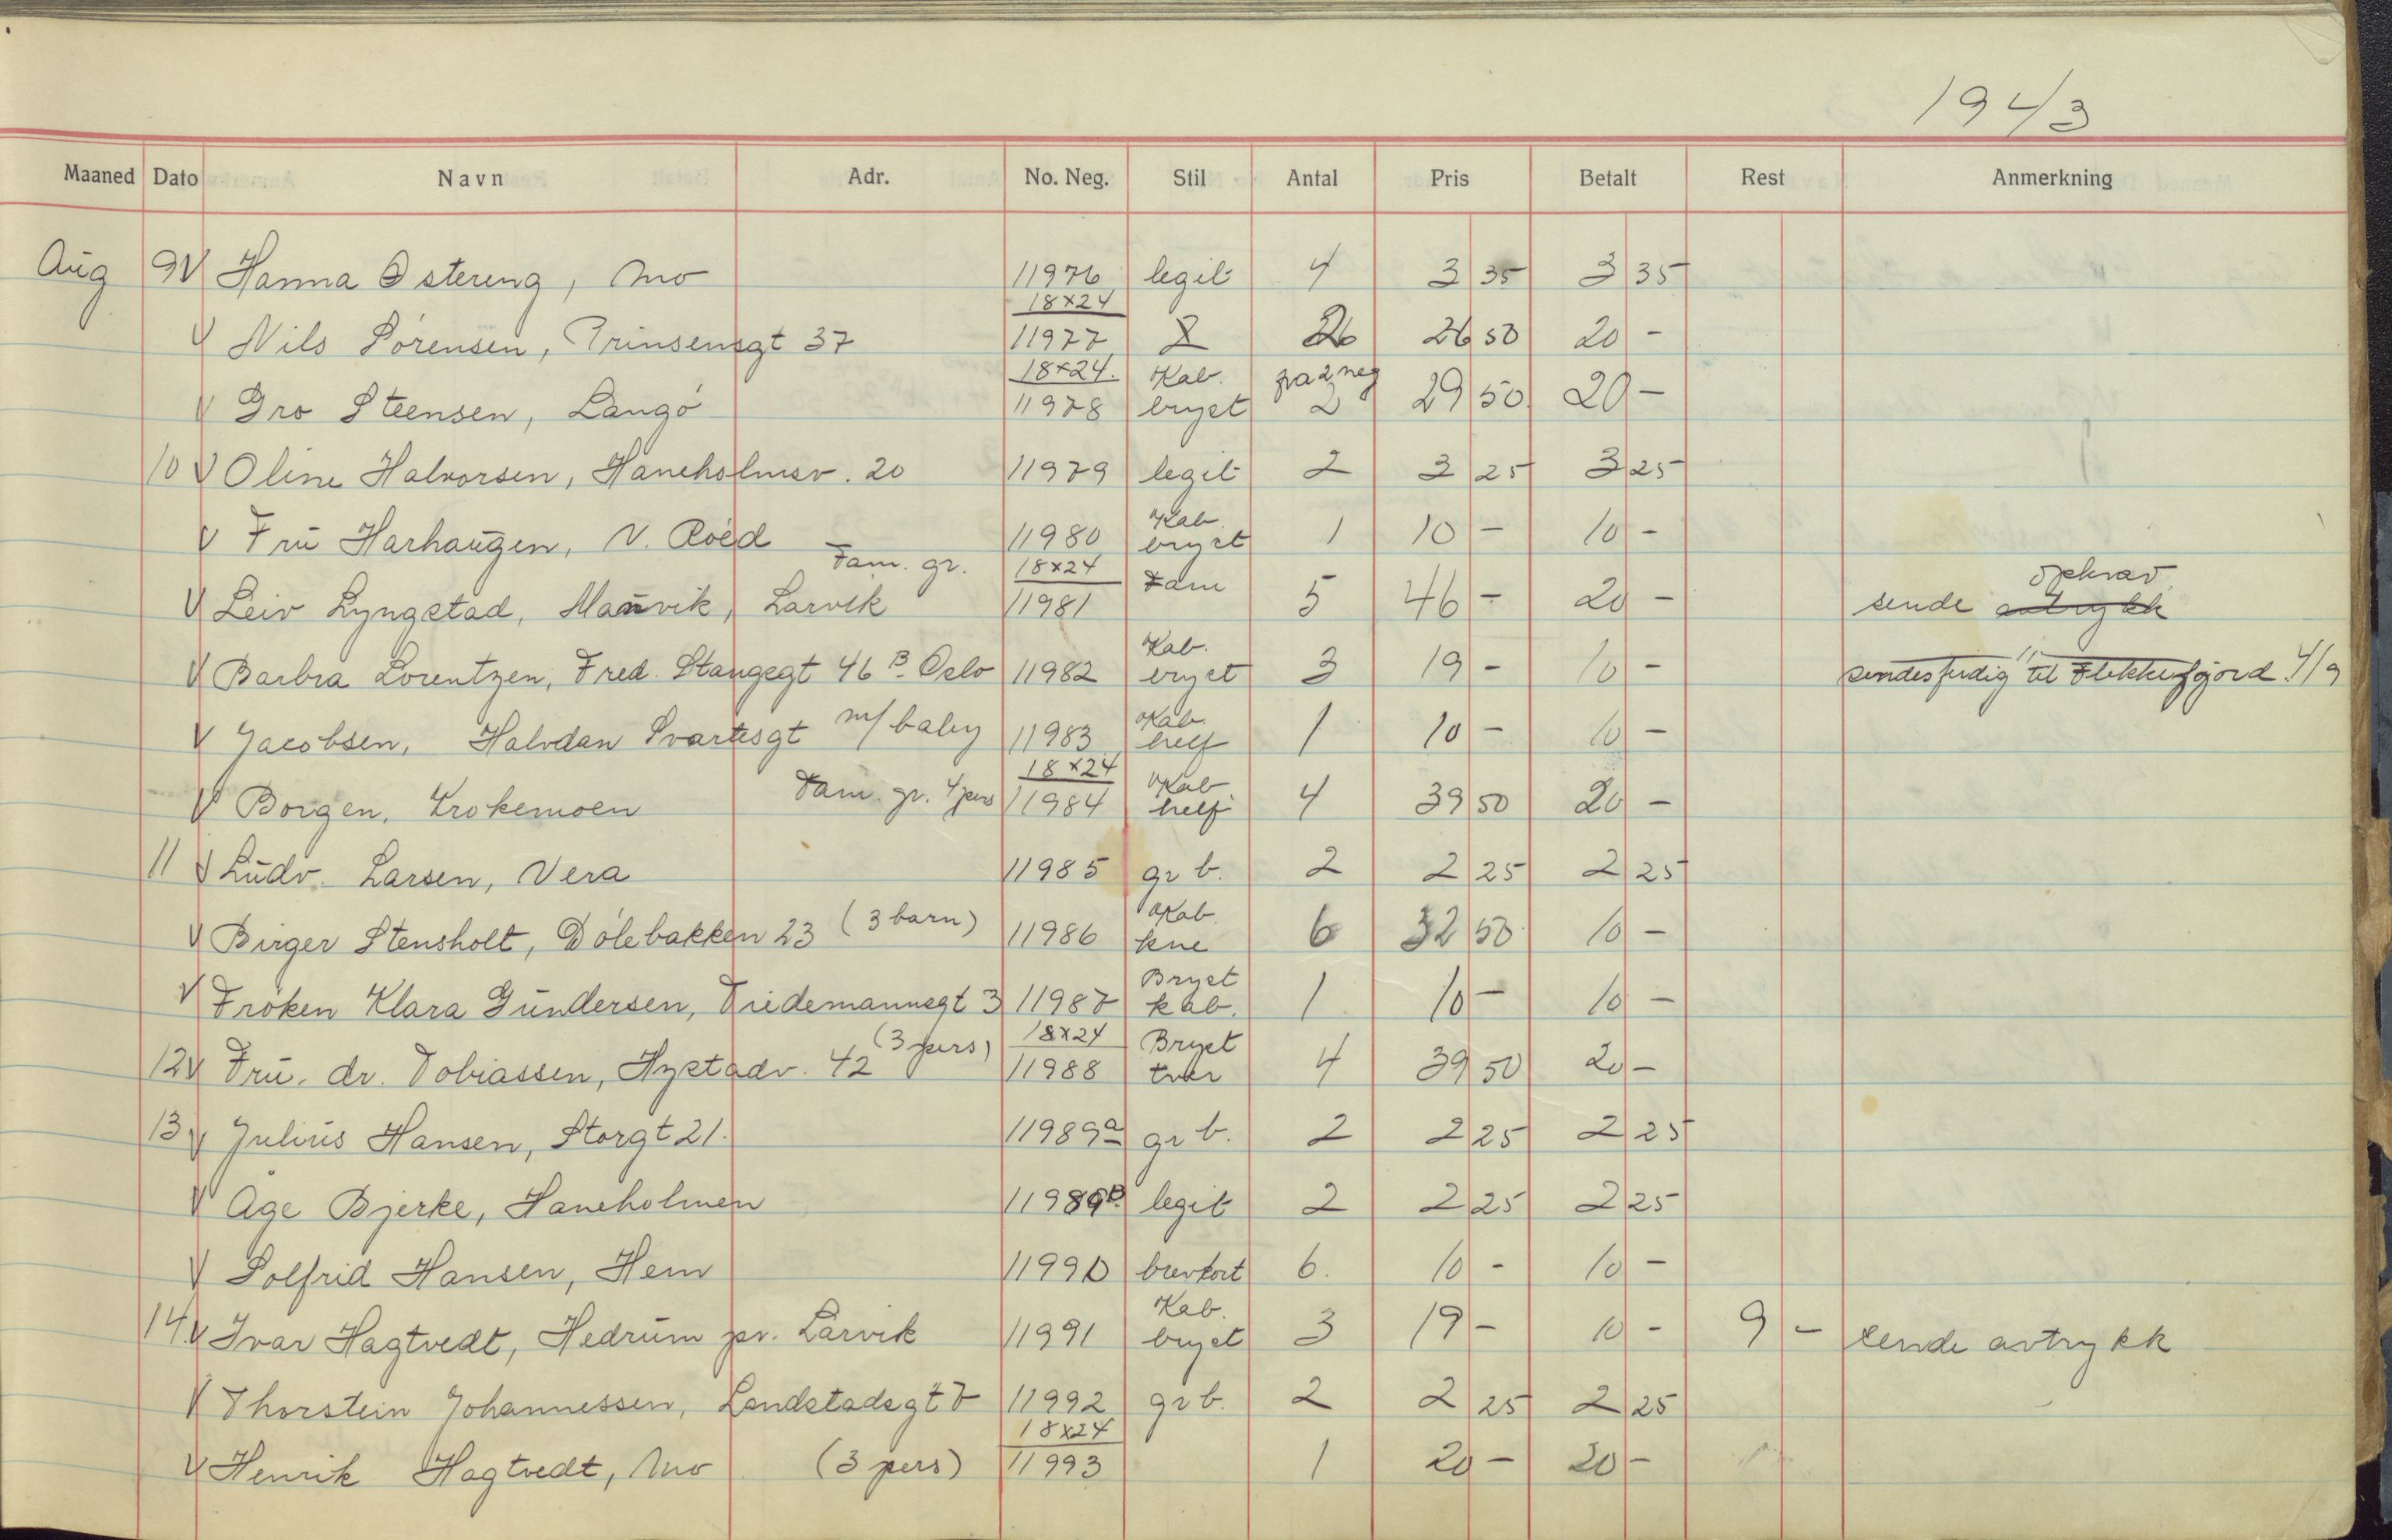 1943
Maaned Dato Navn Adr. No. Neg. Stil Antal Pris Betalt Rest Anmerkning
Aug 9 V Hanna Østereng, Mo 11976 legit 4 3 35 3 35
18x24
V Nils Sörensen, Prinsensgt 37 11977 26 50 20 -
18x24. Kab. fra 2 neg
V Gro Steensen, Langö 11978 bryst 2 29 50 20 -
10 V Oline Halvorsen, Haneholmsv. 20 11979 legit 2 3 25 3 25
Kab.
V Fru Harhaugen, N. Röed 11980 bryst 1 10 - 10 -
Fam. gr. 18x24 opkrav
V Leiv Lyngstad, Manvik, Larvik 11981 Fam 5 46 - 20 - sende avtrykk
Kab.
V Barbra Lorentzen, Fred. Stangsgt 46 B. Oslo 11982 bryst 3 19 - 10 - sendes ferdig til Flekkefjord 4/9
m/ baby Kab.
V Jacobsen, Halvdan Svartesgt 11983 helf 1 10 - 10 -
18x24 Kab
V Borgen, Krokemoen Fam. gr. 4 pers 11984 helf 4 39 50 20 -
11 V Ludv. Larsen, Vera 11985 gr b. 2 2 25 2 25
(3 barn) Kab.
V Birger Stensholt, Dölebakken 23 11986 kne 6 32 50 10 -
Bryst
V Fröken Klara Gundersen, Tiedemannsgt 3 11987 kab. 1 10 - 10 -
(3 pers) 18x24 Bryst
12 V Fru. dr. Tobiassen, Hystadv. 42 11988 tver 4 39 50 20 -
13 V Julius Hansen, Storgt 21. 11989 a gr b. 2 2 25 2 25
V Åge Bjerke, Haneholmen 11989 B. legit 2 2 25 2 25
V Solfrid Hansen, Hem 11990 brevkort 6. 10 - 10 -
Kab.
14. V Ivar Hagtvedt, Hedrum pr. Larvik 11991 bryst 3 19 - 10 - 9 - sende avtrykk
V Thorstein Johannessen, Landstadsgt 7 11992 gr b. 2 2 25 2 25
18x24
V Henrik Hagtvedt, Mo (3 pers) 11993 1 20 - 20 -